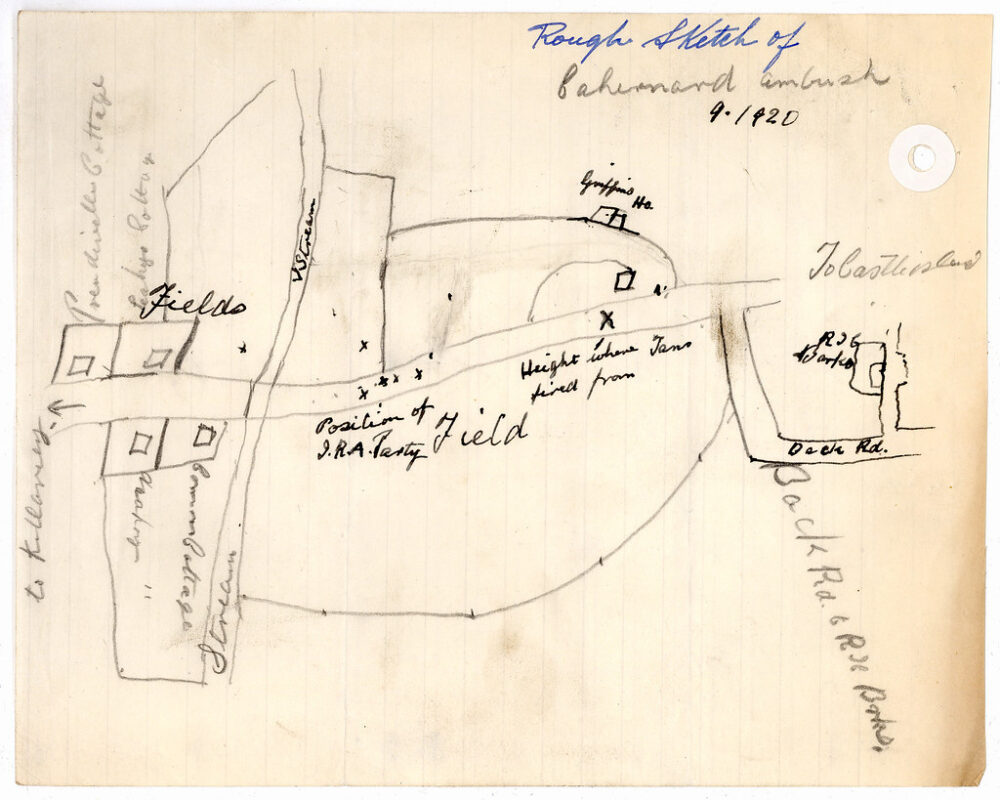 Rough Sketch of
Cahernard ambush
9.1920
Prendiville Cottage
Leahys Cottage
Griffins
Ho.
Stream
Fields
To Castleisland
RIC
Barks
Height where Tans
fired from
Position of
I.R.A. Party
Field
to Killarney
Back Rd.
Cottage
"
Stream
Back Rd. to RIC Barks.